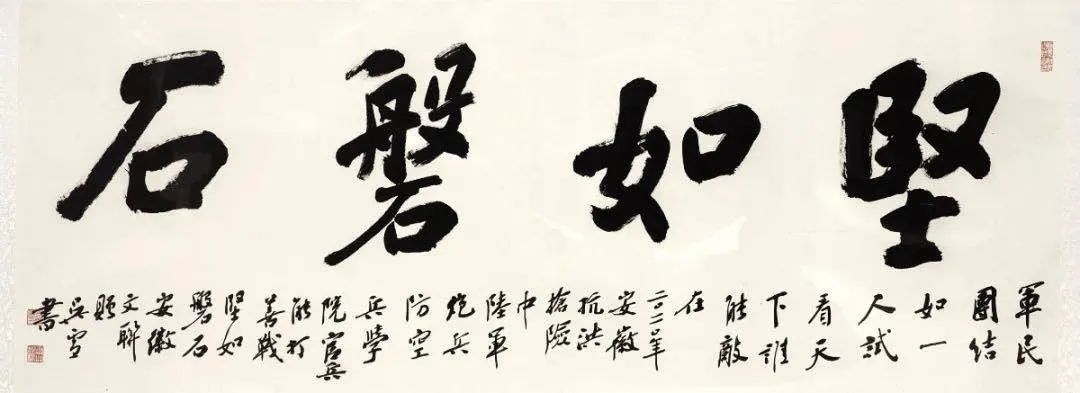 堅如磐石
軍民
團结
如一
人試
看天
下誰
能敵
在
年
安徽
抗洪
搶險
中
陸軍
炮兵
防空
兵學
院官兵
能打
善戰
堅如
磐石
安徽
文聯
題
吳雪
書